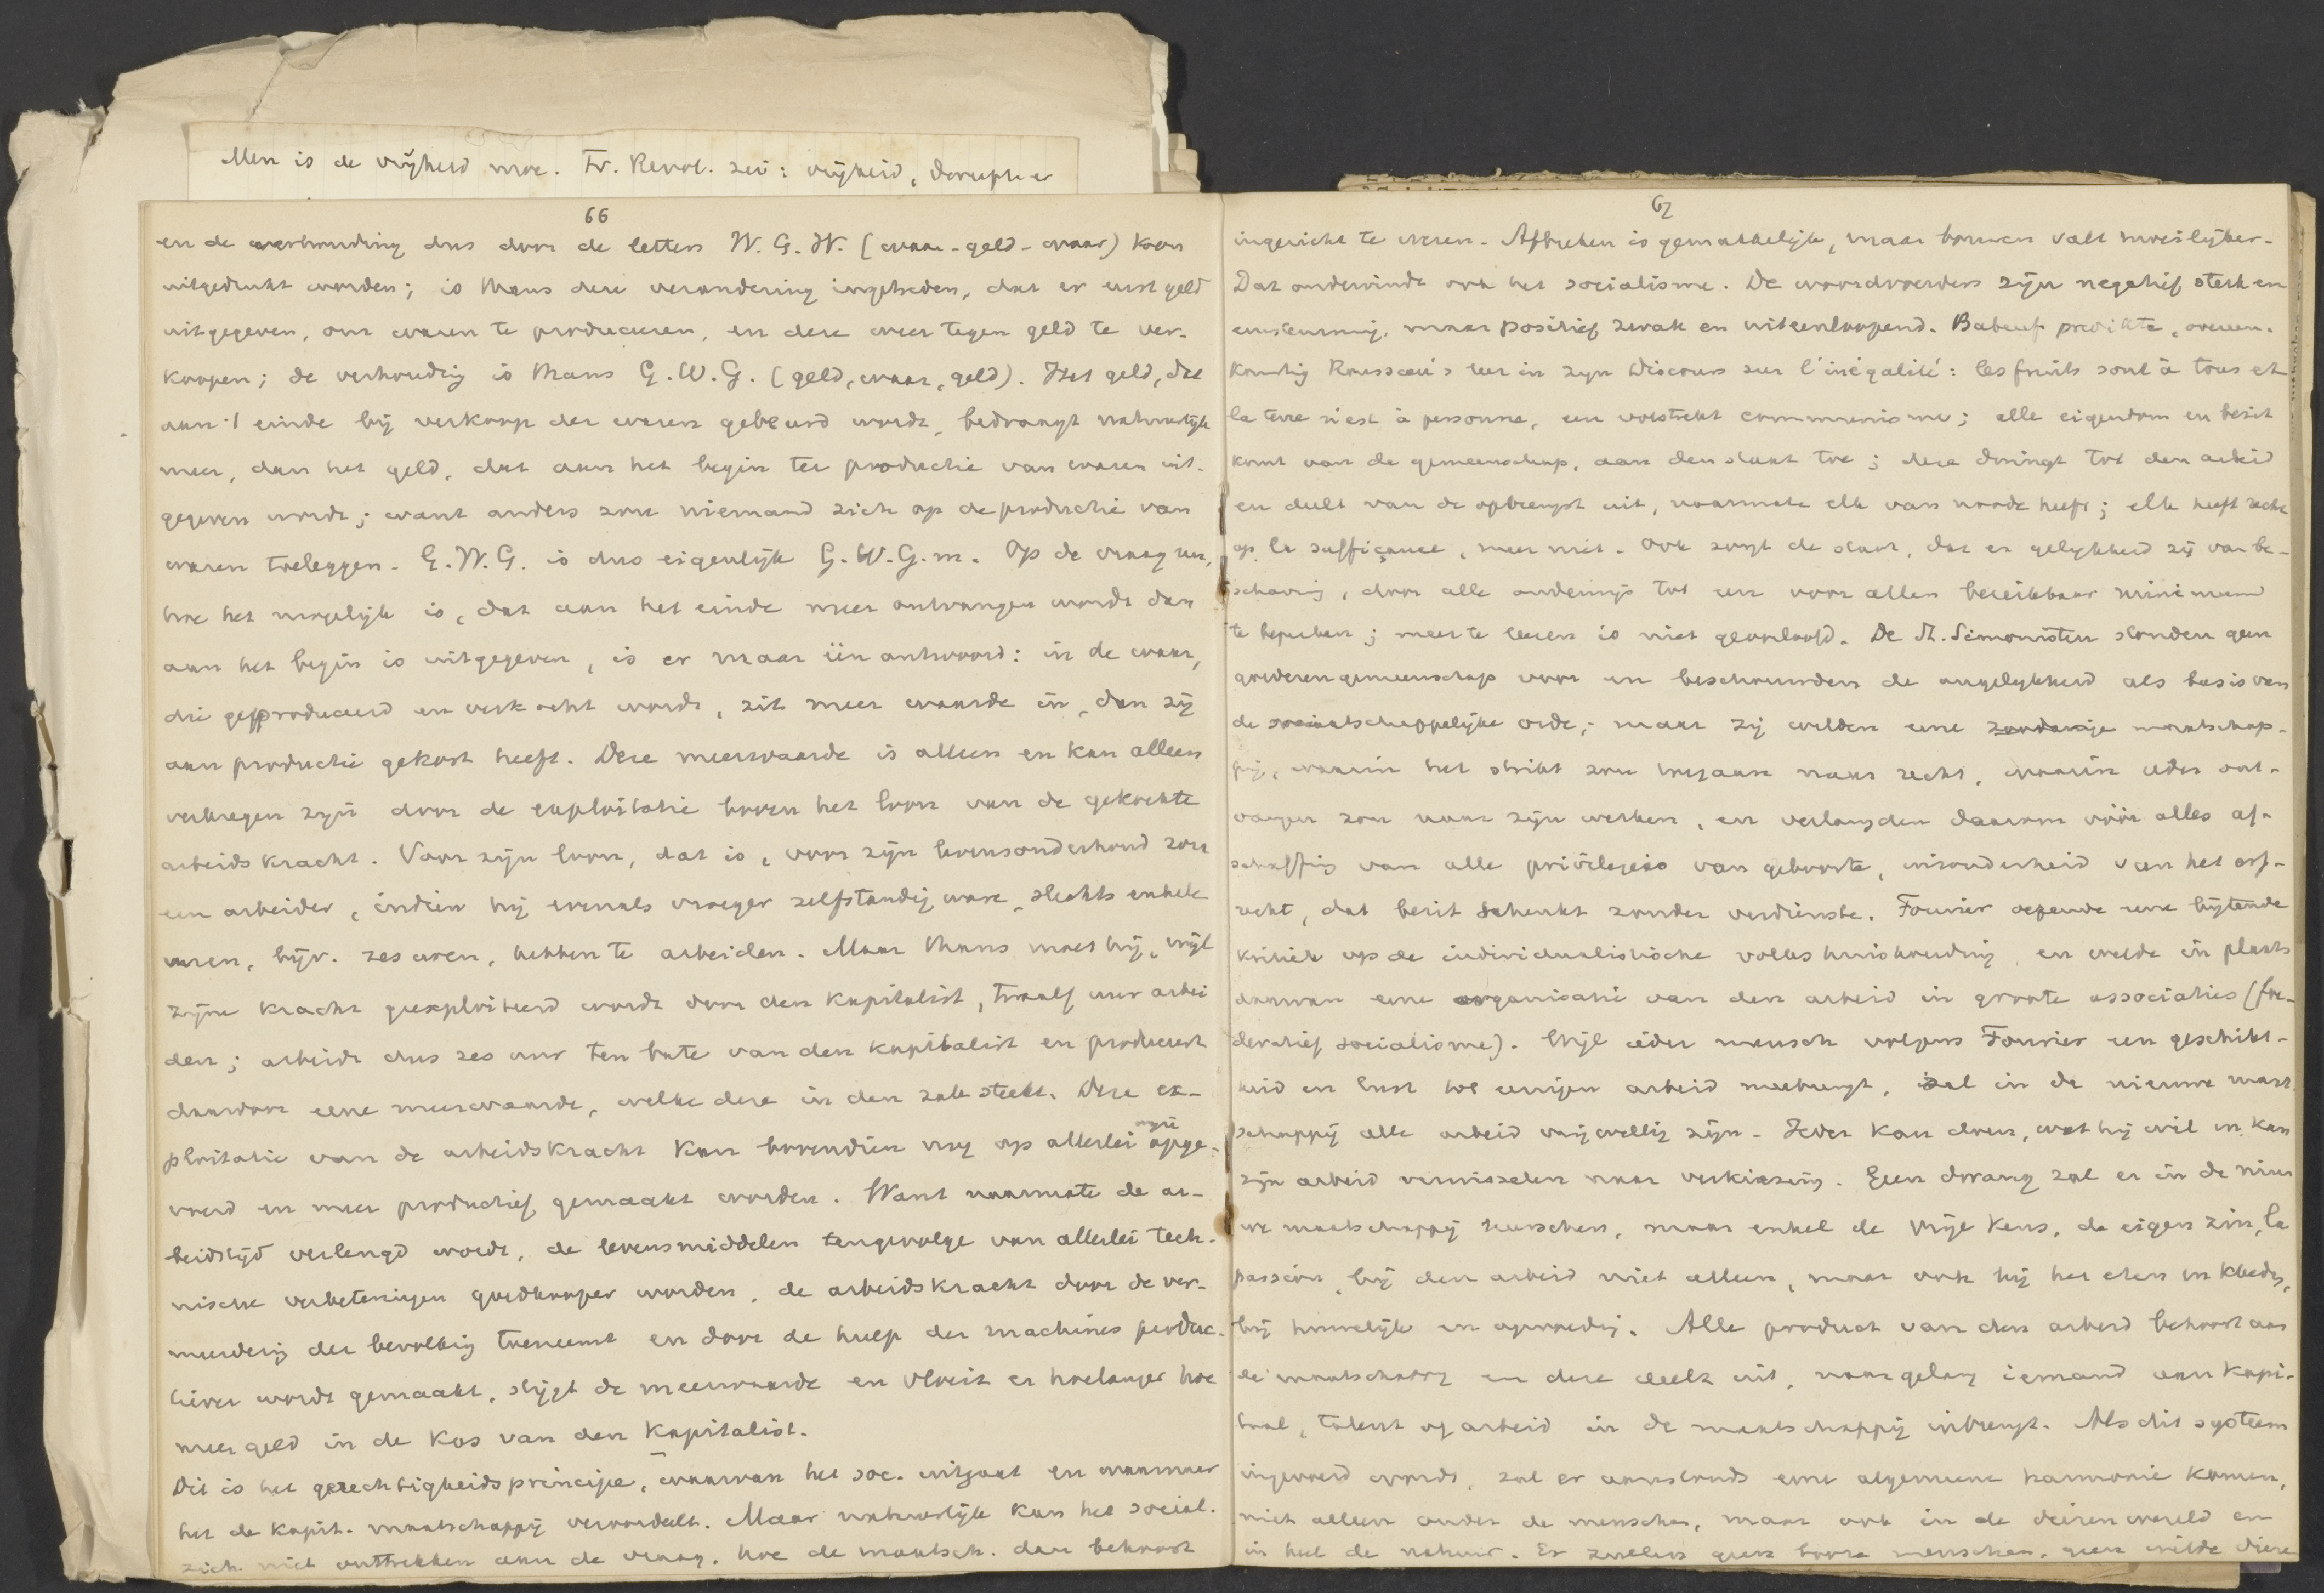 Men is de vrijheid moe. Fr. Revol. zei: vrijheid,
66
en de verhouding dus door de letters W. G. W. (waar-geld-waar) kon
uitgedrukt worden; is thans deze verandering ingetreden, dat er eerst geld
uitgegeven, om waren te produceeren, en deze weer tegen geld te ver-
koopen; de verhoudig is thans G. W. G. (geld, waar, geld). Het geld, dat
aan 't einde bij verkoop der waren gebeurd wordt, bedraagt natuurlijk
meer, dan het geld, dat aan het begin ter productie van waren uit-
gegeven wordt; want anders zou niemand zich op de productie van
waren toeleggen. G. W. G. is dus eigenlijk G. W. G. m. Op de vraag nu,
hoe het mogelijk is, dat aan het einde meer ontvangen wordt dan
aan het begin is uitgegeven, is er maar één antwoord: in de waar,
die geproduceerd en verkocht wordt, zit meer waarde in, dan zij
aan productie gekost heeft. Deze meerwaarde is alleen en kan alleen
verkregen zijn door de exploitatie boven het loon van de gekochte
arbeidskracht. Voor zijn loon, dat is, voor zijn levensonderhoud zou
een arbeider, indien hij evenals vroeger zelfstandig ware, slechts enkele
uren, bijv. zes uren, hebben te arbeiden. Maar thans moet hij, wijl
zijne kracht geexploiteerd wordt door den kapitalist, twaalf uur arbei
den; arbeidt dus zes uur ten bate van den kapitalist en produceert
daardoor eene meerwaarde, welke deze in den zak steekt. Deze ex-
ploitatie van de arbeidskracht kan bovendien nog op allerlei wijze opge-
voerd en meer productief gemaakt worden. Want naarmate de ar-
beidstijd verlengd wordt, de levensmiddelen tengevolge van allerlei tech-
nische verbeteringen goedkooper worden, de arbeidskracht door de ver-
meerderig der bevolkig toeneemt en door de hulp der machines produc-
tiever wordt gemaakt, stijgt de meerwaarde en vloeit er hoelanger hoe
meer geld in de kas van den kapitalist.
Dit is het gerechtigheidsprincipe, waarvan het soc. uitgaat en waarnaar
het de kapit. maatschappij veroordeelt. Maar natuurlijk kan het social.
zich niet onttrekken aan de vraag, hoe de maatsch. dan behoort
67
ingericht te wezen. Afbreken is gemakkelijk, maar bouwen valt moeilijker.
Dat ondervindt ook het socialisme. De woordvoerders zijn negatief sterk en
eenstemmig, maar positief zwak en uiteenloopend. Babeuf predikte, overeen-
komstig Rousseau's leer in zijn Discours sur l'inégalité: les fruits sont à tous et
la terre n'est à personne, een volstrekt communisme; alle eigendom en bezit
komt van de gemeenschap, aan den staat toe; deze dwingt tot den arbeid
en deelt van de opbrengst uit, naarmate elk van noode heeft; elk heeft recht
op la suffiçance, meer niet. Ook zorgt de staat, dat er gelijkheid zij van be-
schaving, door alle onderwijs tot een voor allen bereikbaar minimum
te beperken; meer te leeren is niet geoorloofd. De St. Simonisten stonden geen
goederengemeenschap voor en beschouwden de ongelijkheid als basis van
de maatschappelijke orde; maar zij wilden eene zoodanige maatschap-
pij, waarin het strikt zou toegaan naar recht, waarin ieder ont-
vangen zou naar zijn werken, en verlangden daarom vóór alles af-
schaffig van alle privilegies van geboorte, inzonderheid van het erf-
recht, dat bezit schenkt zonder verdienste. Fourier oefende eene bijtende
kritiek op de individualistische volkshuishouding en wilde in plaats
daarvan eene organisatie van den arbeid in groote associaties (foe-
deratief socialisme). Wijl ieder mensch volgens Fourier een geschikt-
heid en lust tot eenigen arbeid meebrengt, zal in de nieuwe maat
schappij alle arbeid vrijwillig zijn. Ieder kan doen, wat hij wil en kan
zijn arbeid verwisselen naar verkiezing. Geen dwang zal er in de nieu
we maatschappij heerschen, maar enkel de vrije keus, de eigen zin, la
passion, bij den arbeid niet alleen, maar ook bij het eten en kleedij,
bij huwelijk en opvoedig. Alle product van den arbeid behoort aan
de maatschappij en deze deelt uit, naar gelang iemand aan kapi-
taal, talent of arbeid in de maatschappij inbrengt. Als dit systeem
ingevoerd wordt, zal er aanstonds eene algemeene harmonie komen,
niet alleen onder de menschen, maar ook in de dierenwereld en
in heel de natuur. Er zullen geen booze menschen, geen wilde diere